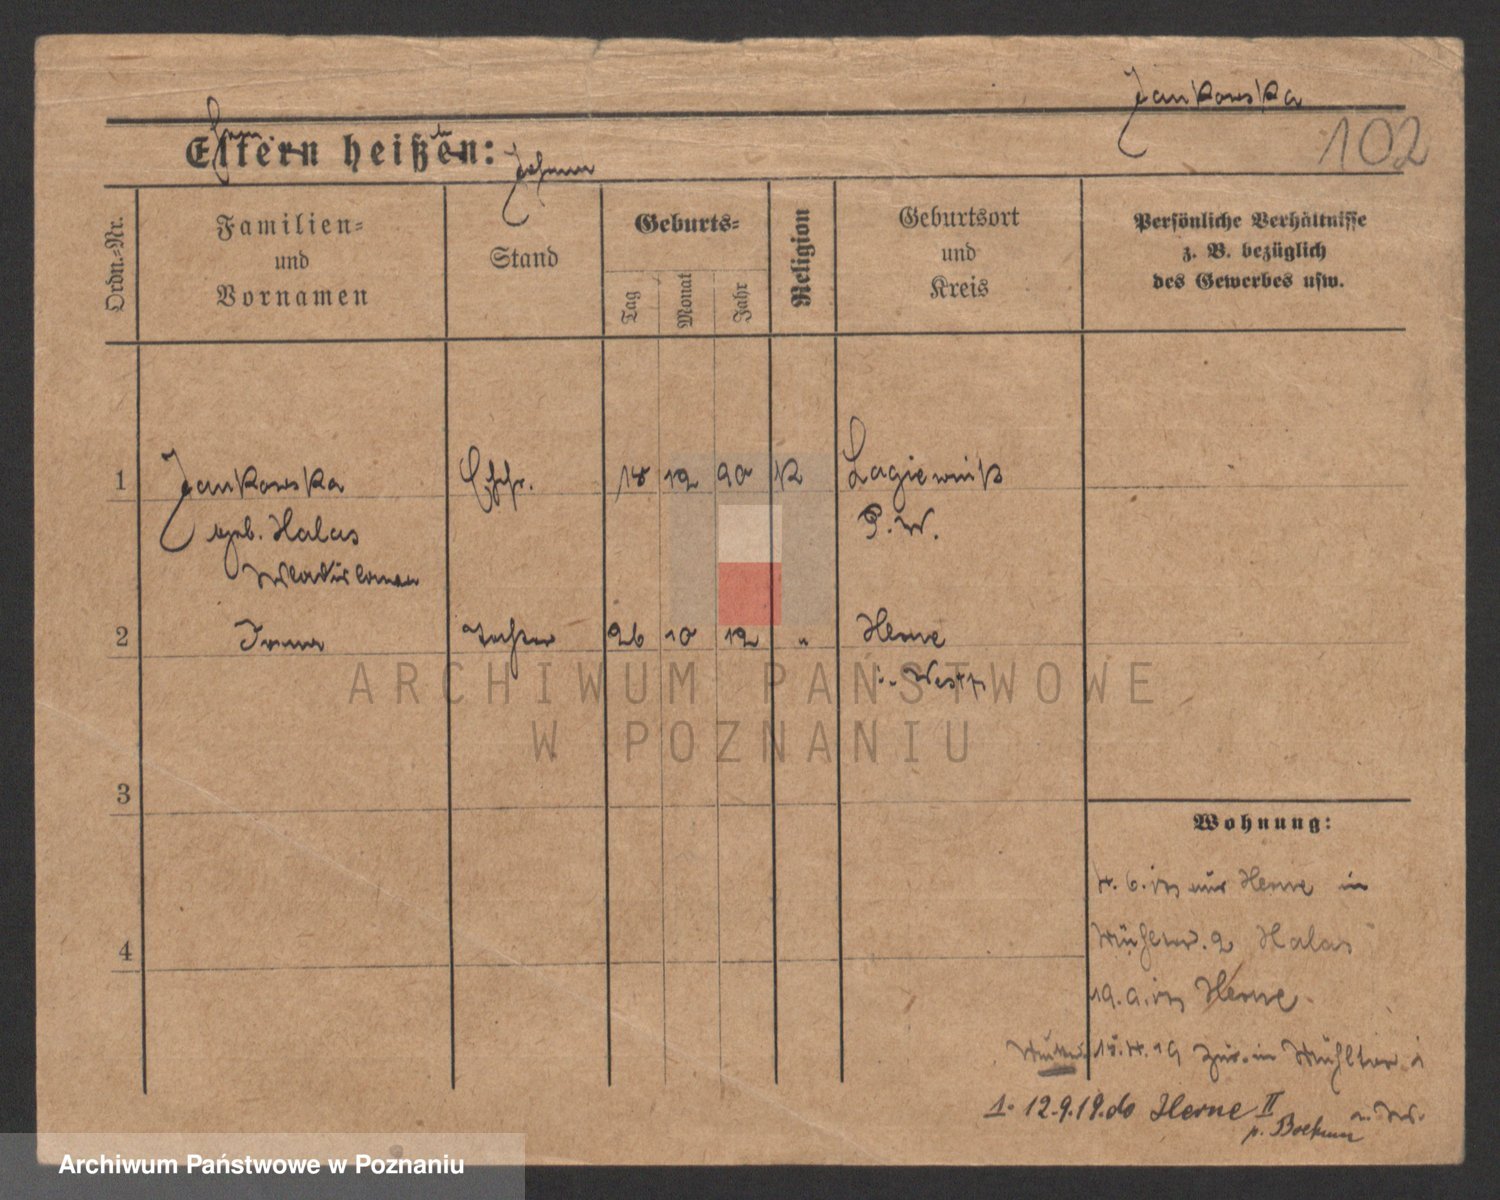 Jankowska
102
Eltern heißen:
Johann
Ordn.-Nr.
Familien-
und
Vornamen
Stand
Geburts-
Tag
Monat
Jahr
Religion
Geburtsort
und
Kreis
Persönliche Verhältnisse
z. B. bezüglich
des Gewerbes usw.
1 Jankowska Ehfr. 18 12 90 K Lagiewnik
geb. Halas P. W.
2 Irma Tochter 26 10 12 " Herne
i. Westf
3
4
Wohnung:
4. 6. aus Herne in
Halas
19. 9. Herne
15. 4. 19 in
1. 12.9.19. do Herne II
p. Bochum
ARCHIWUM PAŃSTWOWE
W POZNANIU
Archiwum Państwowe w Poznaniu